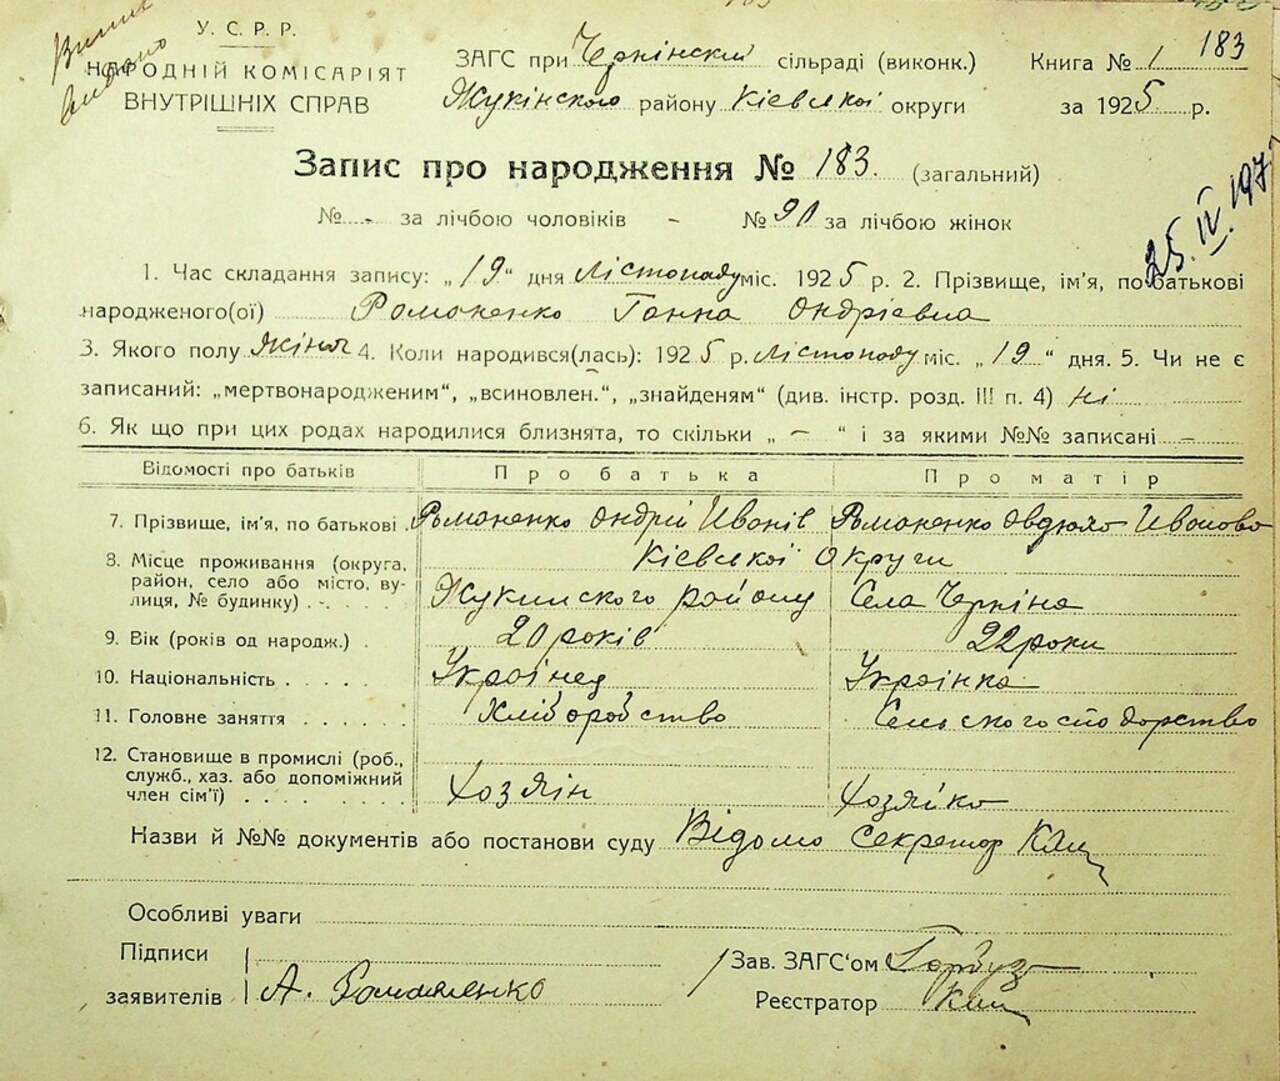 183
У.С.Р.Р.
НАРОДНІЙ КОМІСАРІЯТ
ВНУТРІШНІХ СПРАВ
ЗАГС при Чернінскій сільраді (виконк.)
Жукінского району Кієвскої округи
Книга № 1 183
за 1925 р.
Запис про народження № 183. (загальний)
№ - за лічбою чоловіків - № 91 за лічбою жінок
25.IV.197
1. Час складання запису: „19“ дня Лістопаду міс. 1925 р. 2. Прізвище, ім'я, по батькові
народженого(ої) Романенко Ганна Ондріевна
3. Якого полу жіноч 4. Коли народився(лась): 1925 р. лістопаду міс. „19“ дня. 5. Чи не є
записаний: „мертвонародженим“, „всиновлен.“, „знайденям“ (див. інстр. розд. III п. 4) ні
6. Як що при цих родах народилися близнята, то скільки „ — “ і за якими №№ записані -
Відомості про батьків Про батька Про матір
7. Прізвище, ім'я, по батькові Романенко Ондрій Іванів Романенко Овдюхо Іваново
8. Місце проживання (округа, район, село або місто, вулиця, № будинку) Кієвскої Округи
Жукинского району Села Черніна
9. Вік (років од народж.) 20 років 22 роки
10. Національність Українец Українка
11. Головне заняття Хліборобство Сельского сподорство
12. Становище в промислі (роб., служб., хаз. або допоміжний член сім'ї) Хозяін Хозяйко
Назви й №№ документів або постанови суду Відомо Секретор
Особливі уваги
Підписи
заявителів А. Романенко
Зав. ЗАГС'ом Горбуз
Реєстратор